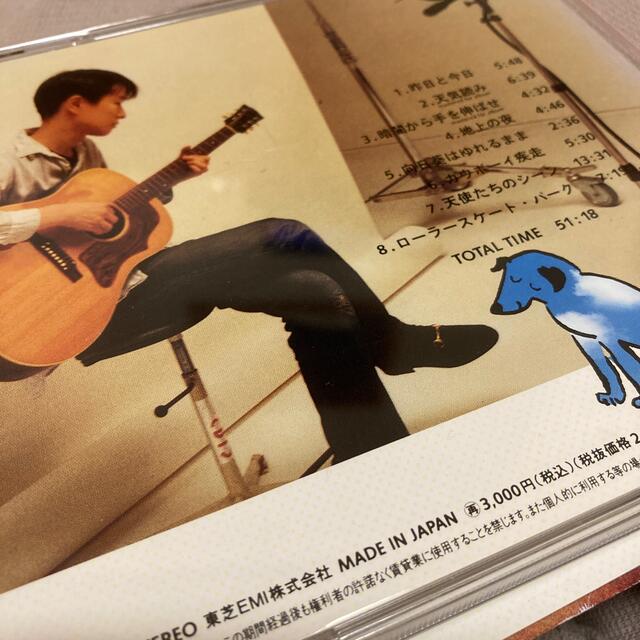 1. 昨日と今日 5:48
2. 天気読み 6:39
3. 暗闇から手を伸ばせ 4:32
4. 地上の夜 4:46
5. 向日葵はゆれるまま 2:36
6. カウボーイ疾走 5:30
7. 天使たちのシーン 13:31
8. ローラースケート・パーク
TOTAL TIME 51:18
STEREO 東芝EMI株式会社 MADE IN JAPAN 再 3,000円(税込)(税抜価格2
この期間経過後も権利者の許諾なく賃貸業に使用することを禁じます。また個人的に利用する等の場